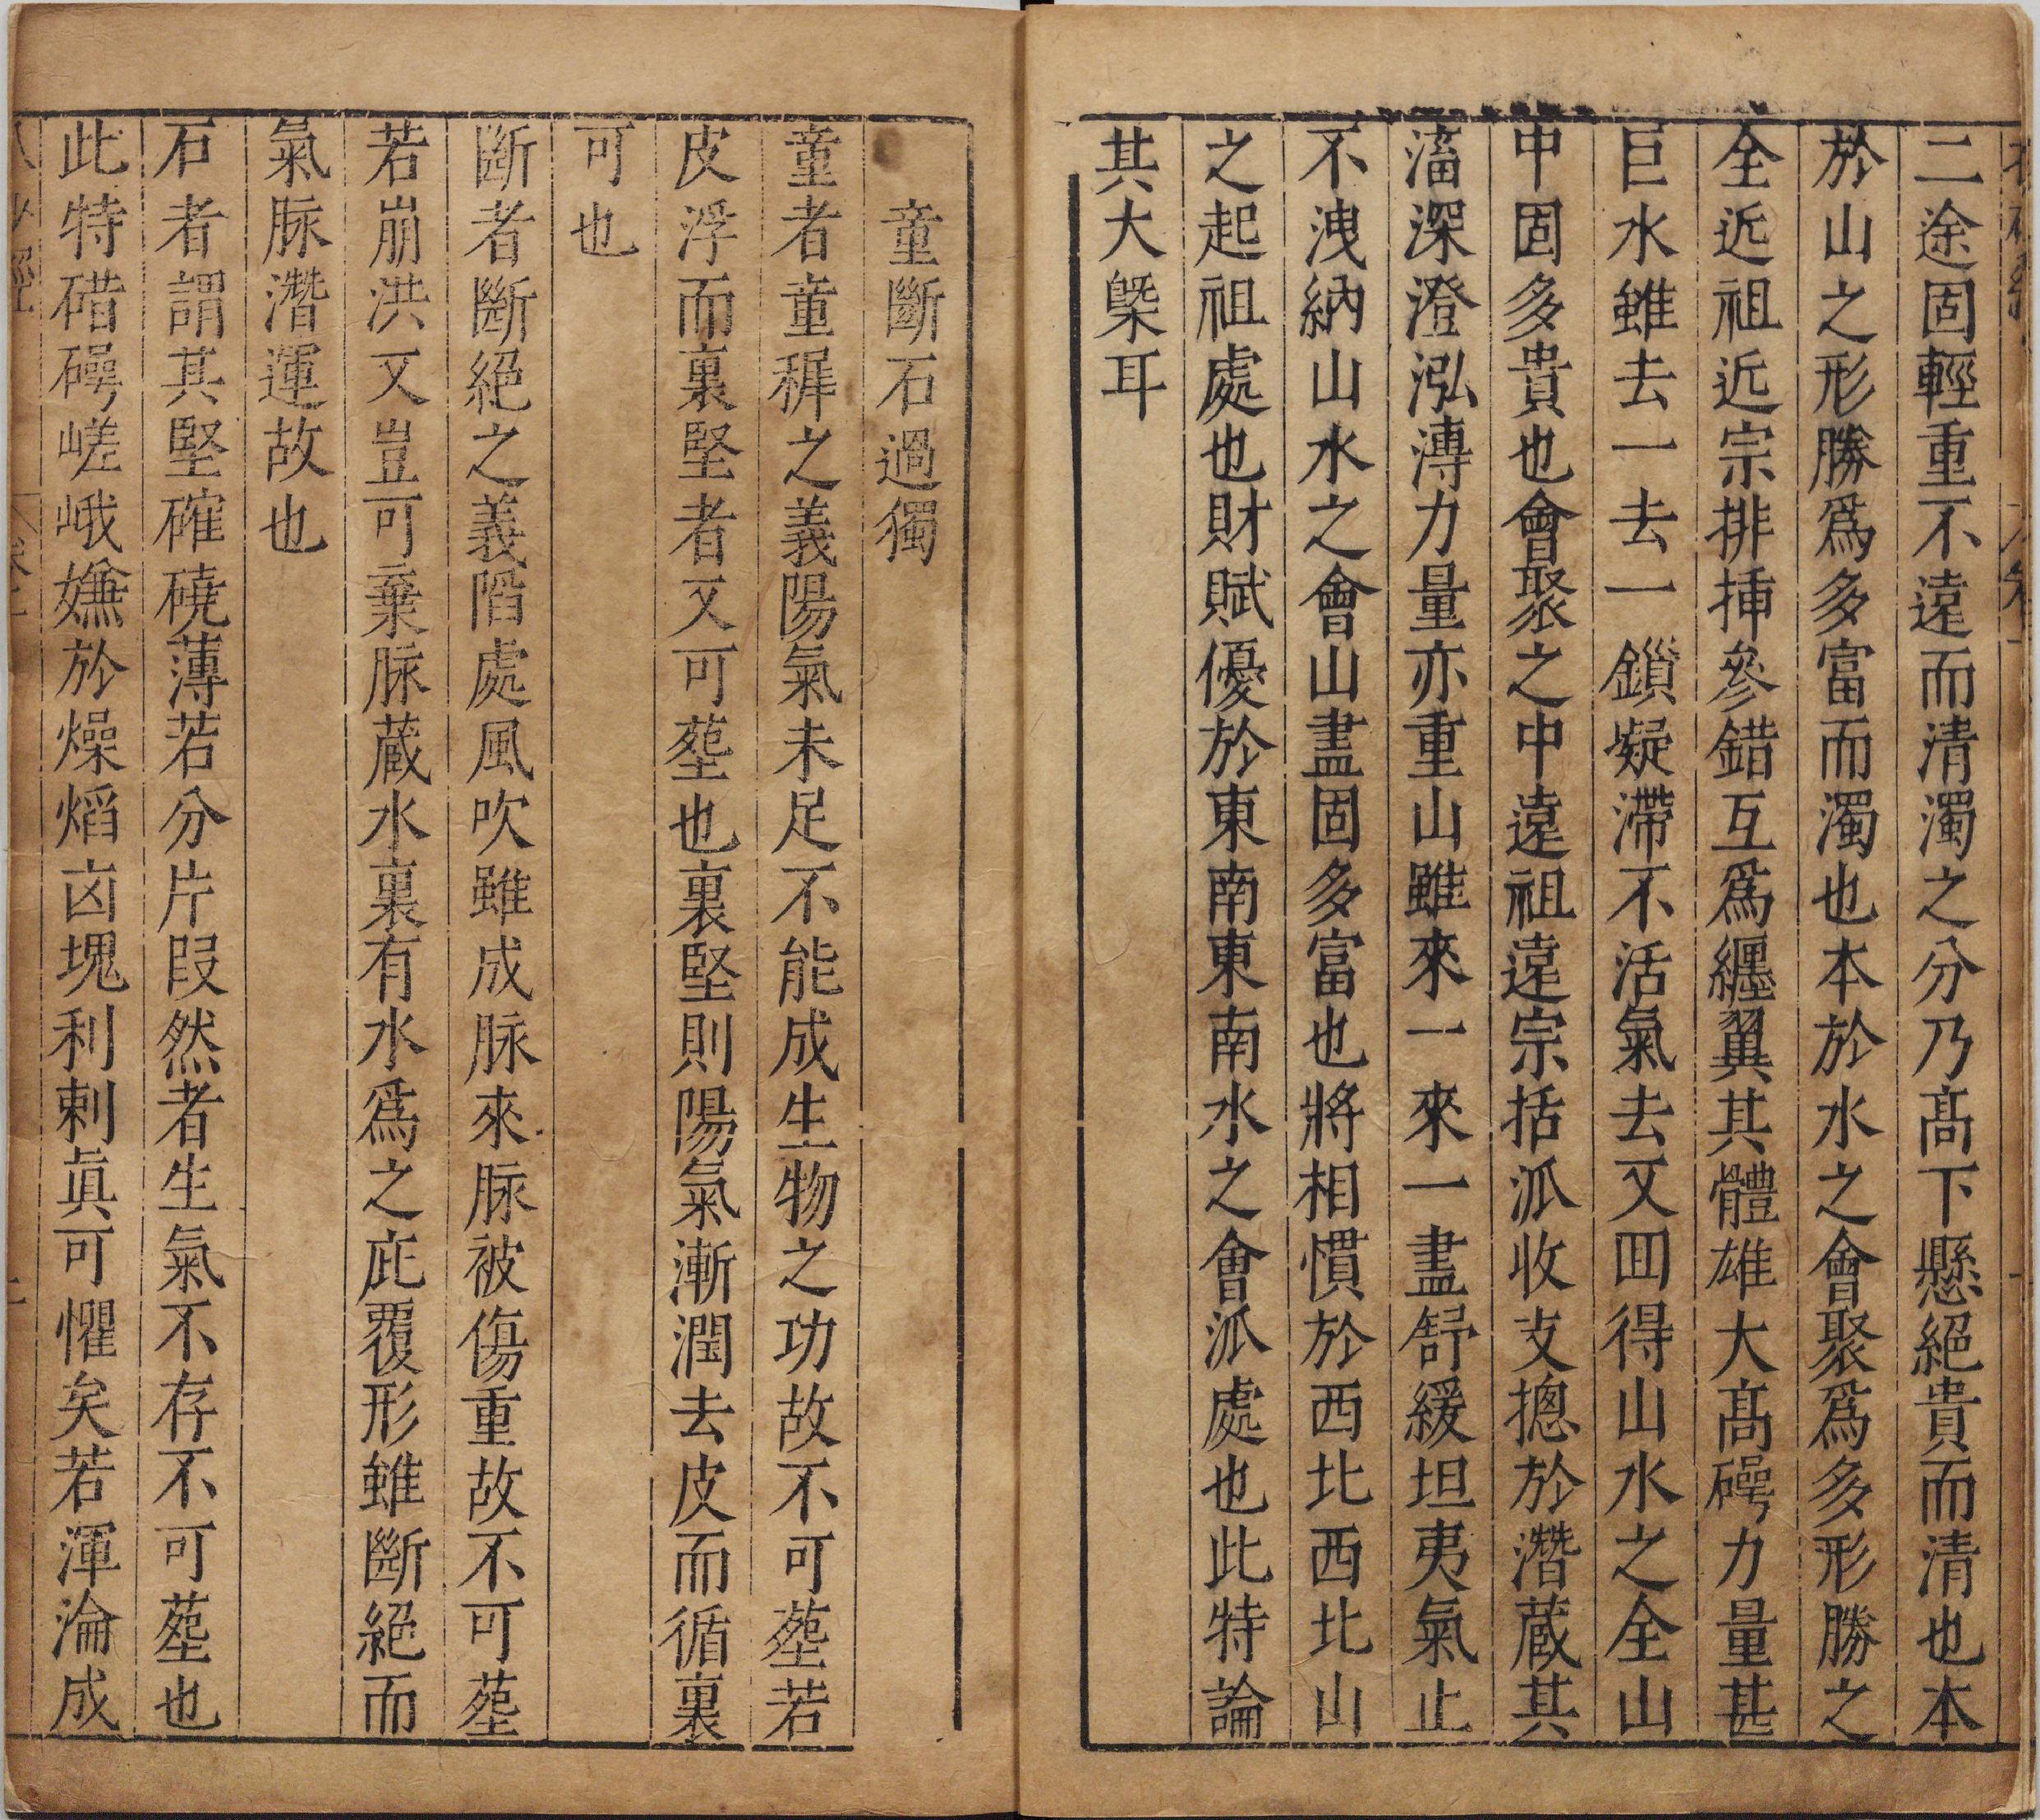 二途固輕重不遠而清濁之分乃髙下懸絕貴而清也本
於山之形勝爲多富而濁也本於水之會聚爲多形勝之
全近祖近宗排揷參錯互爲纒翼其體雄大髙礴力量甚
巨水雖去一去一鎖凝滯不活氣去又囬得山水之全山
中固多貴也會聚之中遠祖遠宗括派收支摠於潛蔵其
滀深澄泓漙力量亦重山雖來一來一盡舒緩坦夷氣止
不洩納山水之會山盡固多富也將相慣於西北西北山
之起祖處也財賦優於東南東南水之會派處也此特論
其大槩耳
童斷石過獨
童者童穉之義陽氣未足不能成生物之功故不可塟若
皮浮而裏堅者又可塟也裏堅則陽氣漸潤去皮而循裏
可也
斷者斷絕之義陷處風吹雖成脉來脉被傷重故不可塟
若崩洪又豈可棄脉蔵水裏有水爲之庇覆形雖斷絕而
氣脉潛運故也
石者謂其堅確磽薄若分片叚然者生氣不存不可塟也
此特碏礴嵯峨嫌於燥熖凶塊利剌眞可懼矣若渾淪成